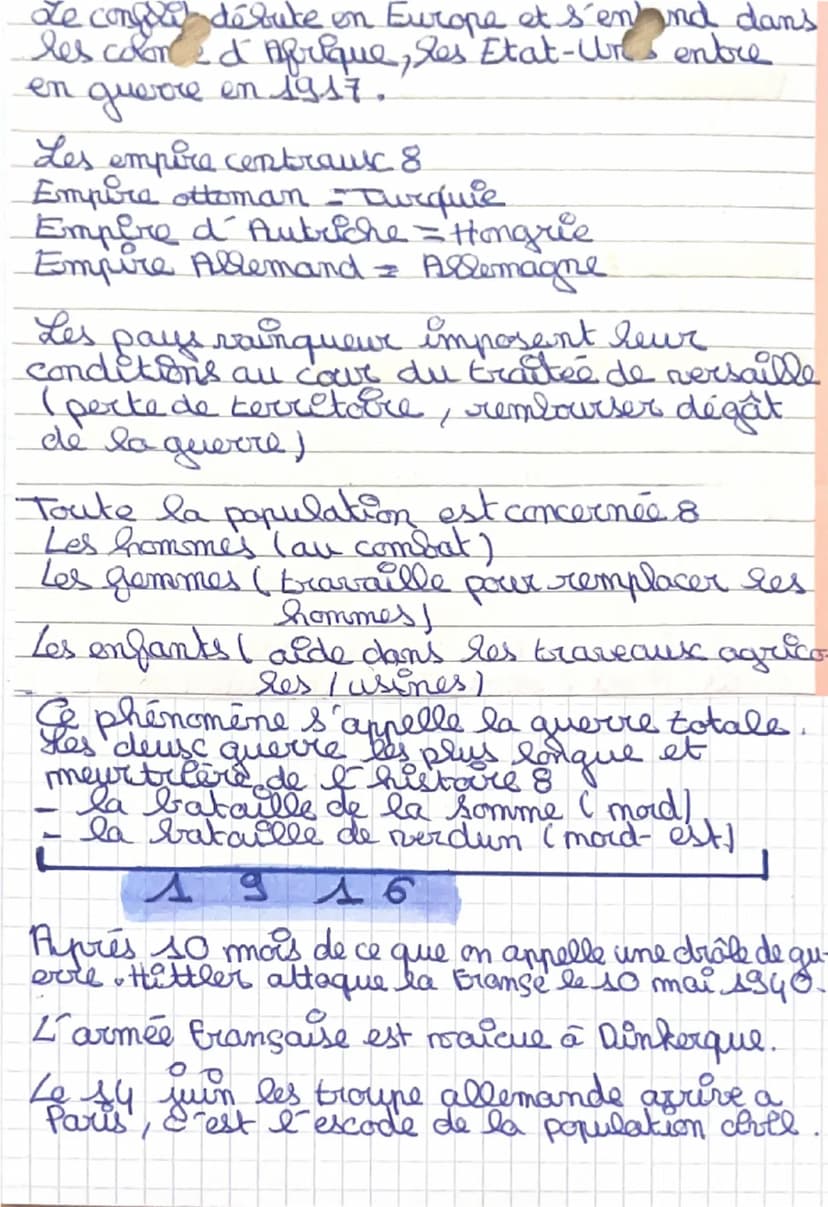 Le conflit débute en Europe et s'en nd dans
les colon e d'Afrique, les Etat-Un s entre
en guerre en 1917.
Les empire centraux :
Empire ottoman = Turquie
Empire d'Autriche = Hongrie
Empire Allemand = Allemagne
Les pays vainqueur imposent leur
conditions au cour du traitée de versaille
(perte de territoire, rembourser dégât
de la guerre)
Toute la population est concernée :
Les hommes (au combat)
Les femmes (travaille pour remplacer les
hommes)
Les enfants (aide dans les traveaux agrico-
les / usines)
Ce phénomène s'appelle la guerre totale.
Les deux guerre les plus longue et
meurtrière de l'histoire :
- la bataille de la somme (nord)
- la bataille de verdun (nord-est)
1916
Après 10 mois de ce que on appelle une drôle de gu-
erre. Hittler attaque la Franse le 10 mai 1940.
L'armée française est vaicue à Dinkerque.
Le 14 juin les troupe allemande arrive a
Paris, c'est l'escode de la population civil.